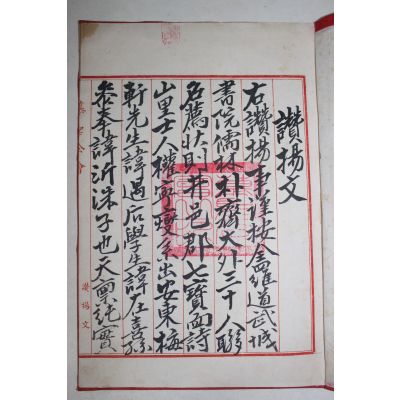 讚揚文
右讚揚事謹按全羅道武城
書院儒林朴齊大外三十人聯
名薦狀則井邑郡七寶面詩
山里士人權寧燮系出安東梅
軒先生諱遇后學生諱在喜孫
參奉諱沂洙子也天稟純實
讚揚文